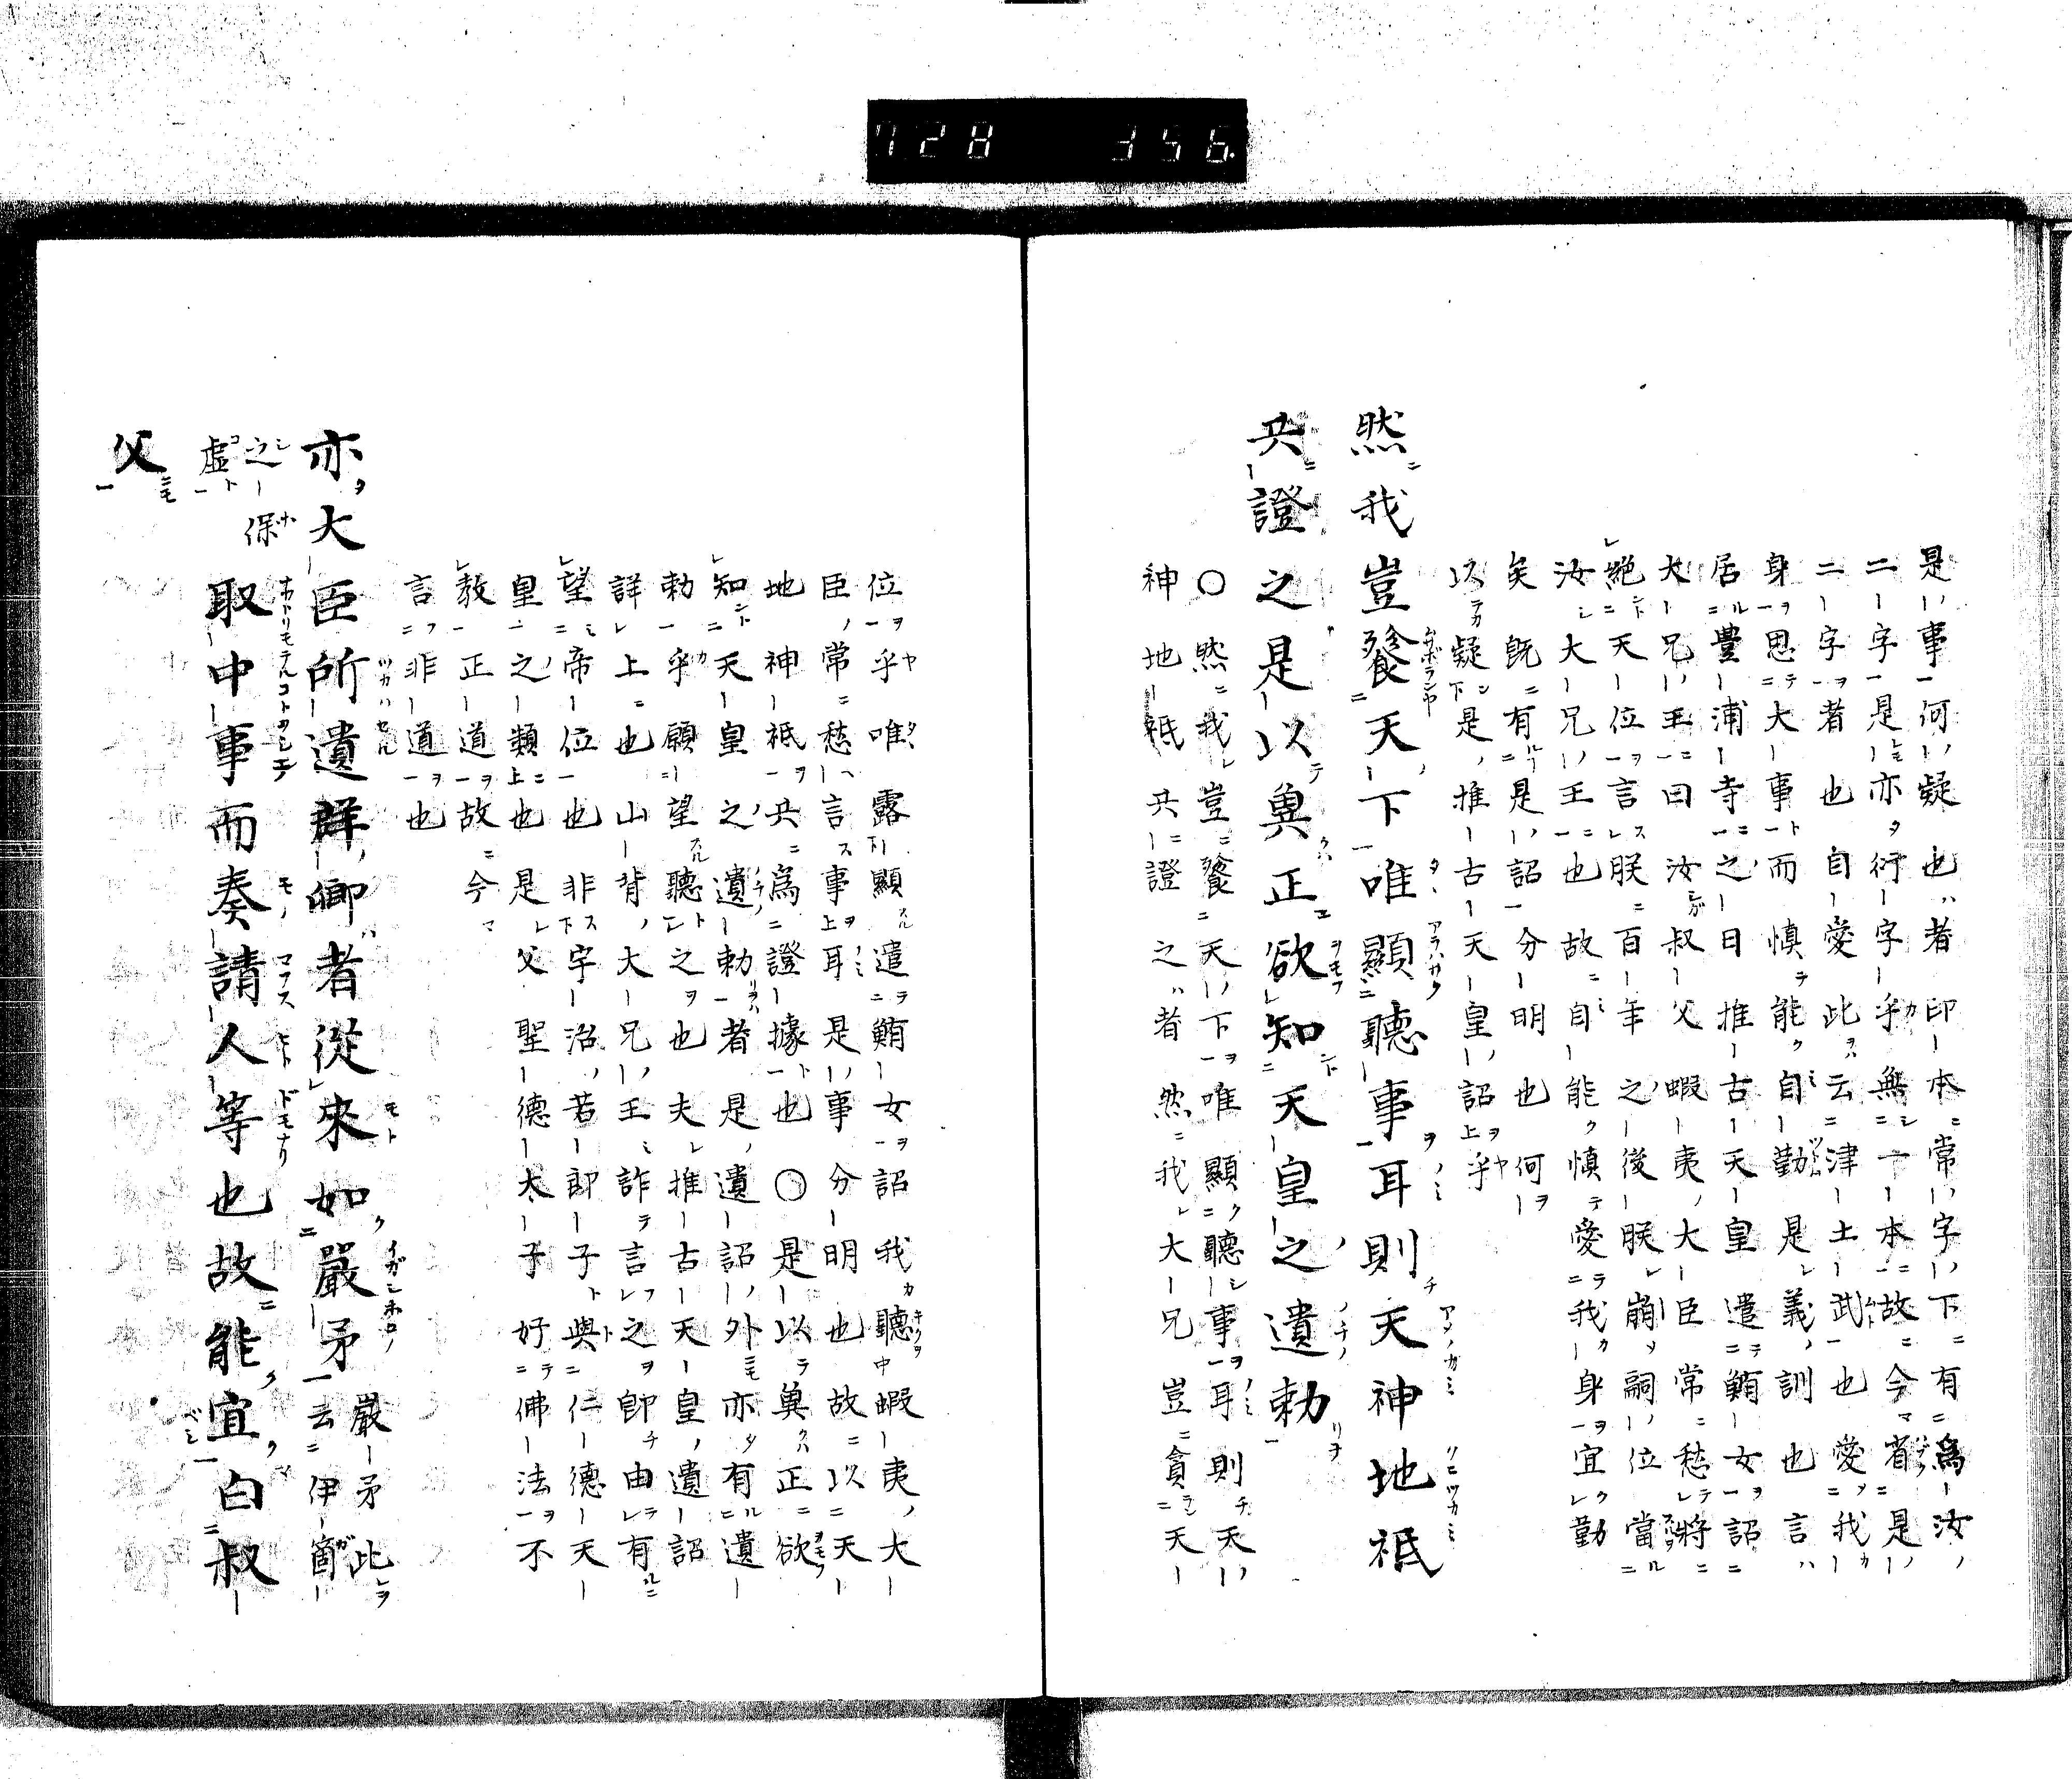 728 356
是事何疑也者印本常字下有爲汝
二字是亦衍字乎無一本故今省是
二字者也自愛此云津土武也愛我
身思大事而慎能自勤是義訓也言
居豊浦寺之日推古天皇遣鮪女詔
大兄王曰汝叔父蝦夷大臣常愁將
絶天位言朕百年之後朕崩嗣位當
汝大兄王也故自能慎愛我身宜勤
矣既有是詔分明也何
以疑是推古天皇詔乎
然我豈餮天下唯顯聽事耳則天神地祇
共證之是以冀正欲知天皇之遺勅
○然我豈餮天下唯顯聽事耳則天
神地祇共證之者然我大兄豈貪天
位乎唯露顯遣鮪女詔我聽蝦夷大
臣常愁言事耳是事分明也故以天
地神祇共爲證據也○是以冀正欲
知天皇之遺勅者是遺詔外亦有遺
勅乎願望聽之也夫推古天皇遺詔
詳上也山背大兄王詐言之即由有
望帝位也非字治若郎子與仁德天
皇之類也是父聖德太子好佛法不
教正道故今
言非道也
亦大臣所遺群卿者從來如嚴矛嚴矛此云伊箇
之保虛取中事而奏請人等也故能宜白叔
父